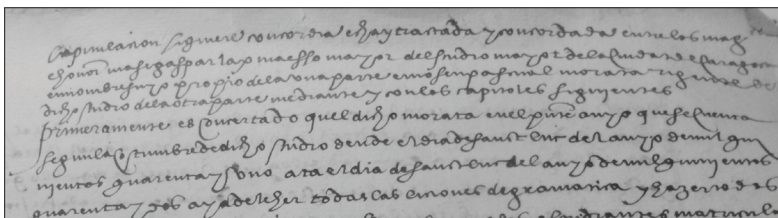 Capitulacion siquiere concordia echa y tractada y concordada entre los mag.cos
e honor. maese gaspar lax maestro mayor del studio mayor de la Ciudat de Caragoça
en nombre suyo propio de la una parte e mosen pascual morata regente de
dicho studio de la otra parte mediante y con los capitoles siguientes
primeramente es concertado quel dicho morata en el pnte anyo que se cuenta
segun la costumbre de dicho studio dende el dia de sanct luc del anyo de mil qui
nientos quarenta y uno asta el dia de sanct luc del anyo de mil quinientos
quarenta y dos aya de leher todas las liciones de gramatica y hazer todos